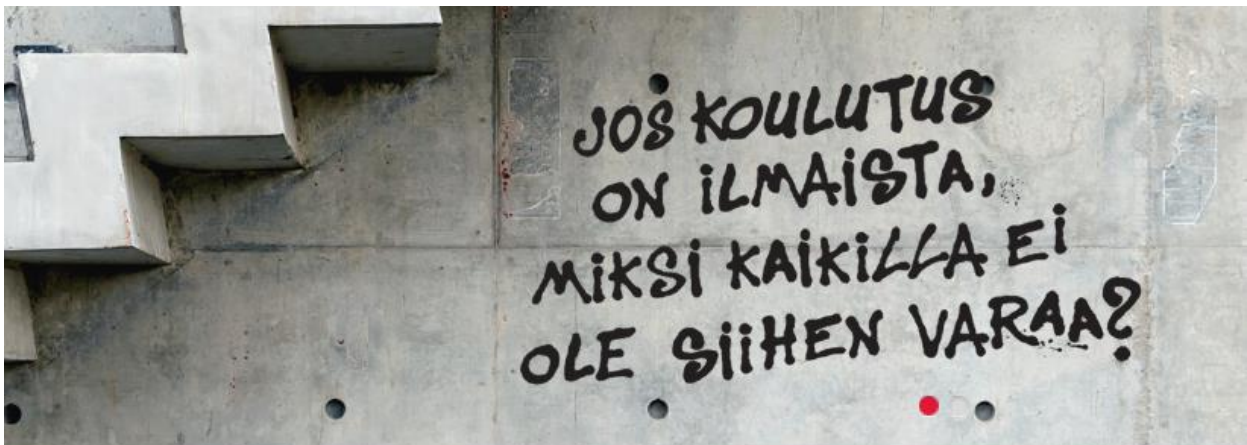 JOS KOULUTUS
ON iLMAiSTA,
MiKSi KAiKiLLA Ei
OLE SiiHEN VARAA?